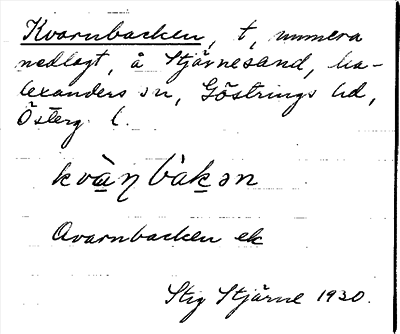 Kvarnbacken, t, numera
nedlagt, å Stjärnesand, ha-
lexanders sn, Göstrings hd,
Österg. l.
kvàꞑbàkən
Qvarnbacken ek
Stig Stjärne 1930.